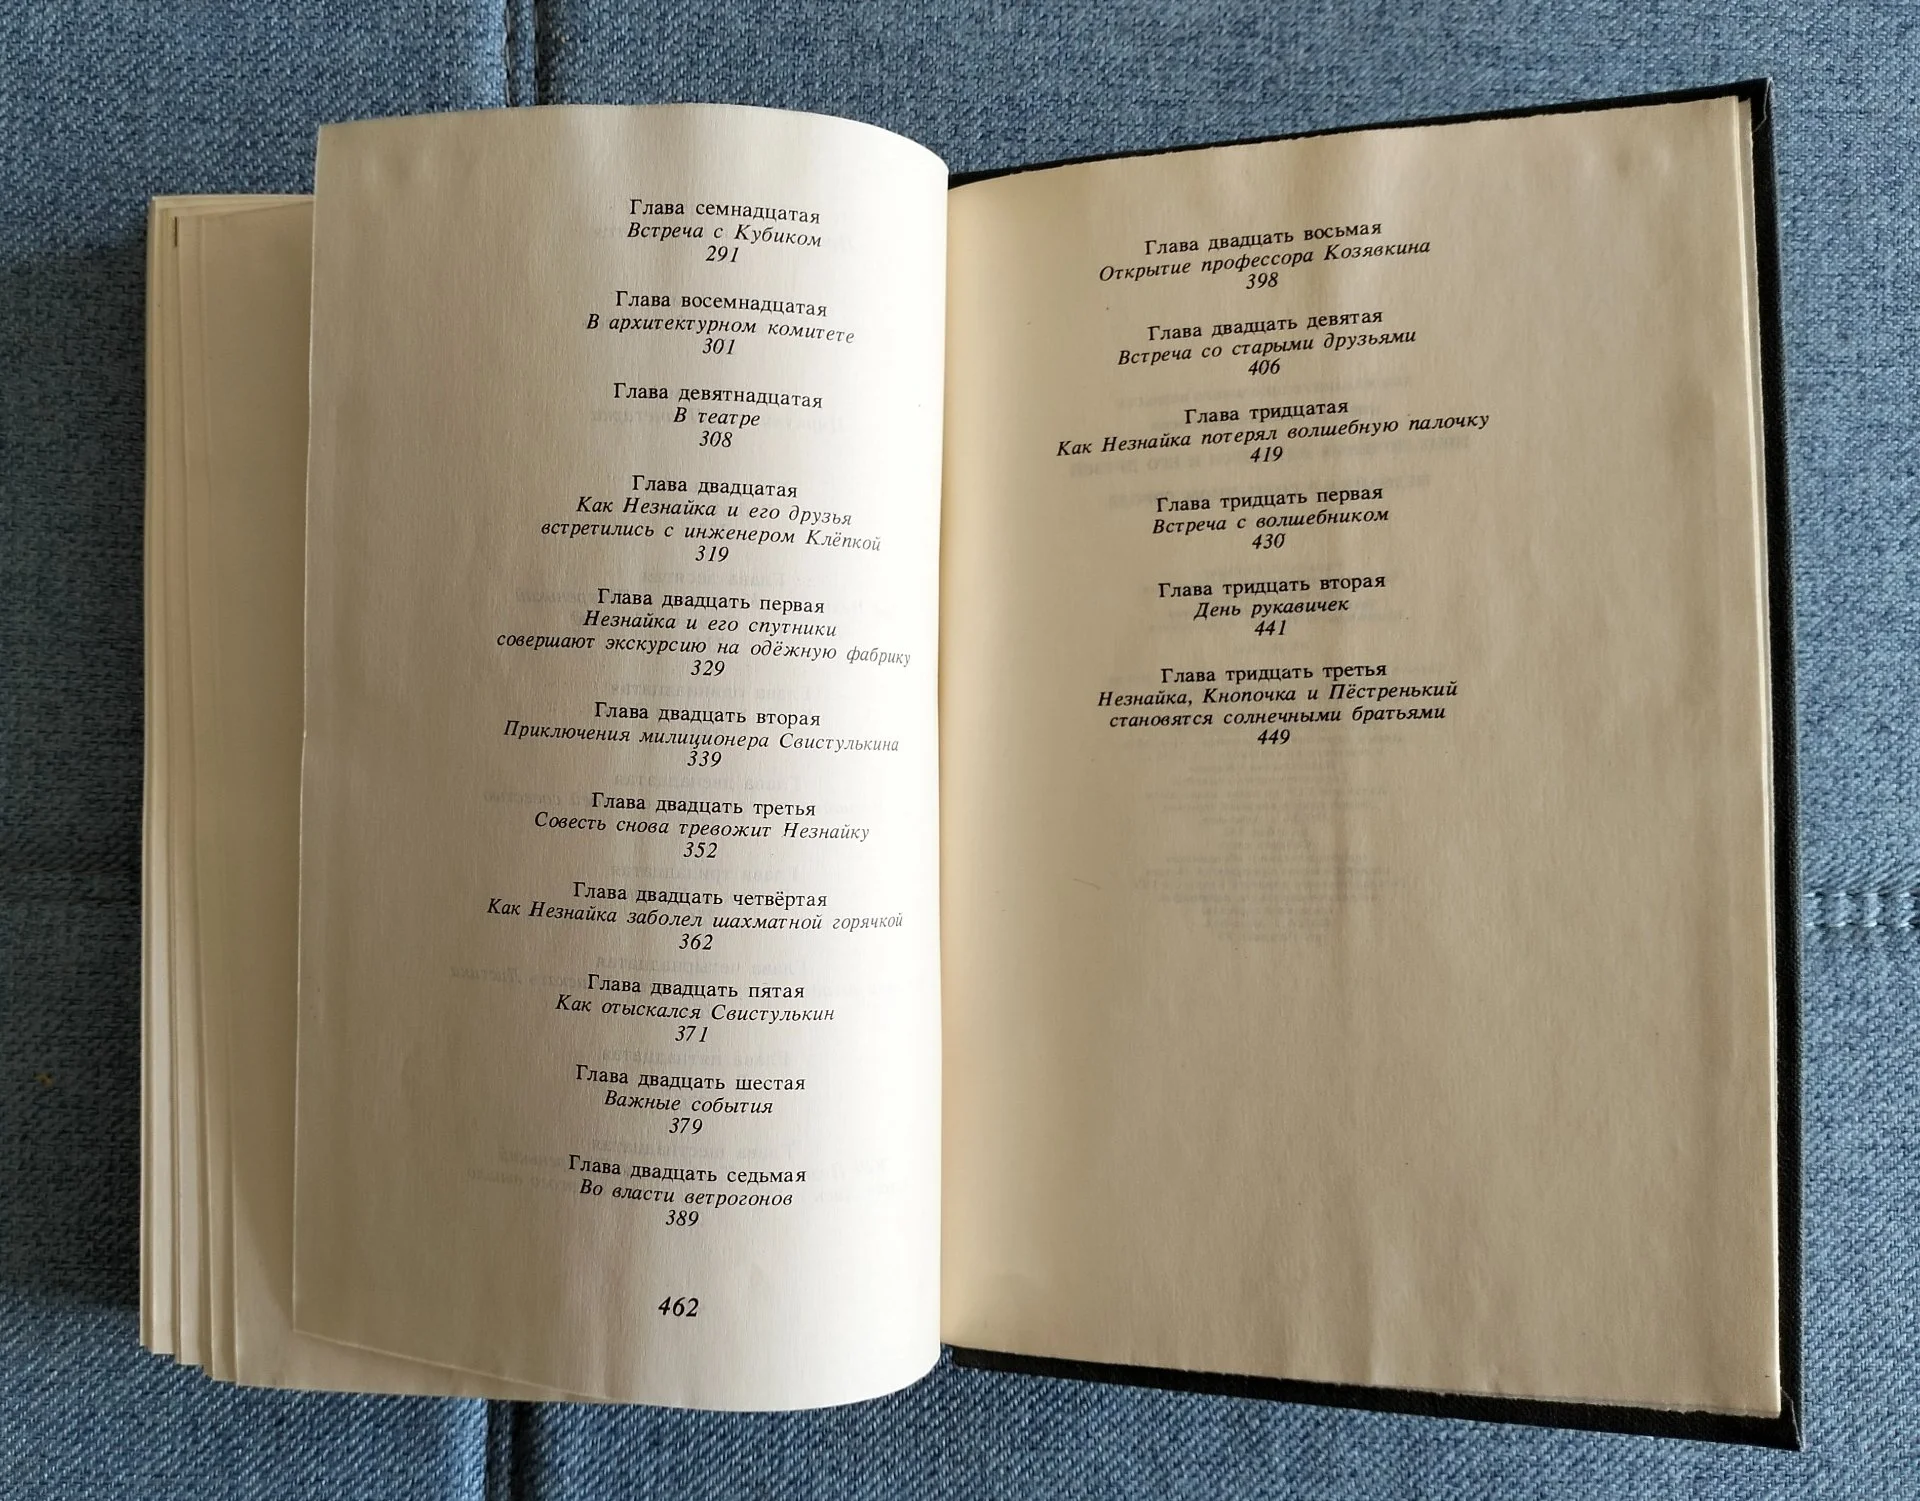 Глава семнадцатая
Встреча с Кубиком
291
Глава восемнадцатая
В архитектурном комитете
301
Глава девятнадцатая
В театре
308
Глава двадцатая
Как Незнайка и его друзья
встретились с инженером Клёпкой
319
Глава двадцать первая
Незнайка и его спутники
совершают экскурсию на одёжную фабрику
329
Глава двадцать вторая
Приключения милиционера Свистулькина
339
Глава двадцать третья
Совесть снова тревожит Незнайку
352
Глава двадцать четвёртая
Как Незнайка заболел шахматной горячкой
362
Глава двадцать пятая
Как отыскался Свистулькин
371
Глава двадцать шестая
Важные события
379
Глава двадцать седьмая
Во власти ветрогонов
389
462
Глава двадцать восьмая
Открытие профессора Козявкина
398
Глава двадцать девятая
Встреча со старыми друзьями
406
Глава тридцатая
Как Незнайка потерял волшебную палочку
419
Глава тридцать первая
Встреча с волшебником
430
Глава тридцать вторая
День рукавичек
441
Глава тридцать третья
Незнайка, Кнопочка и Пёстренький
становятся солнечными братьями
449